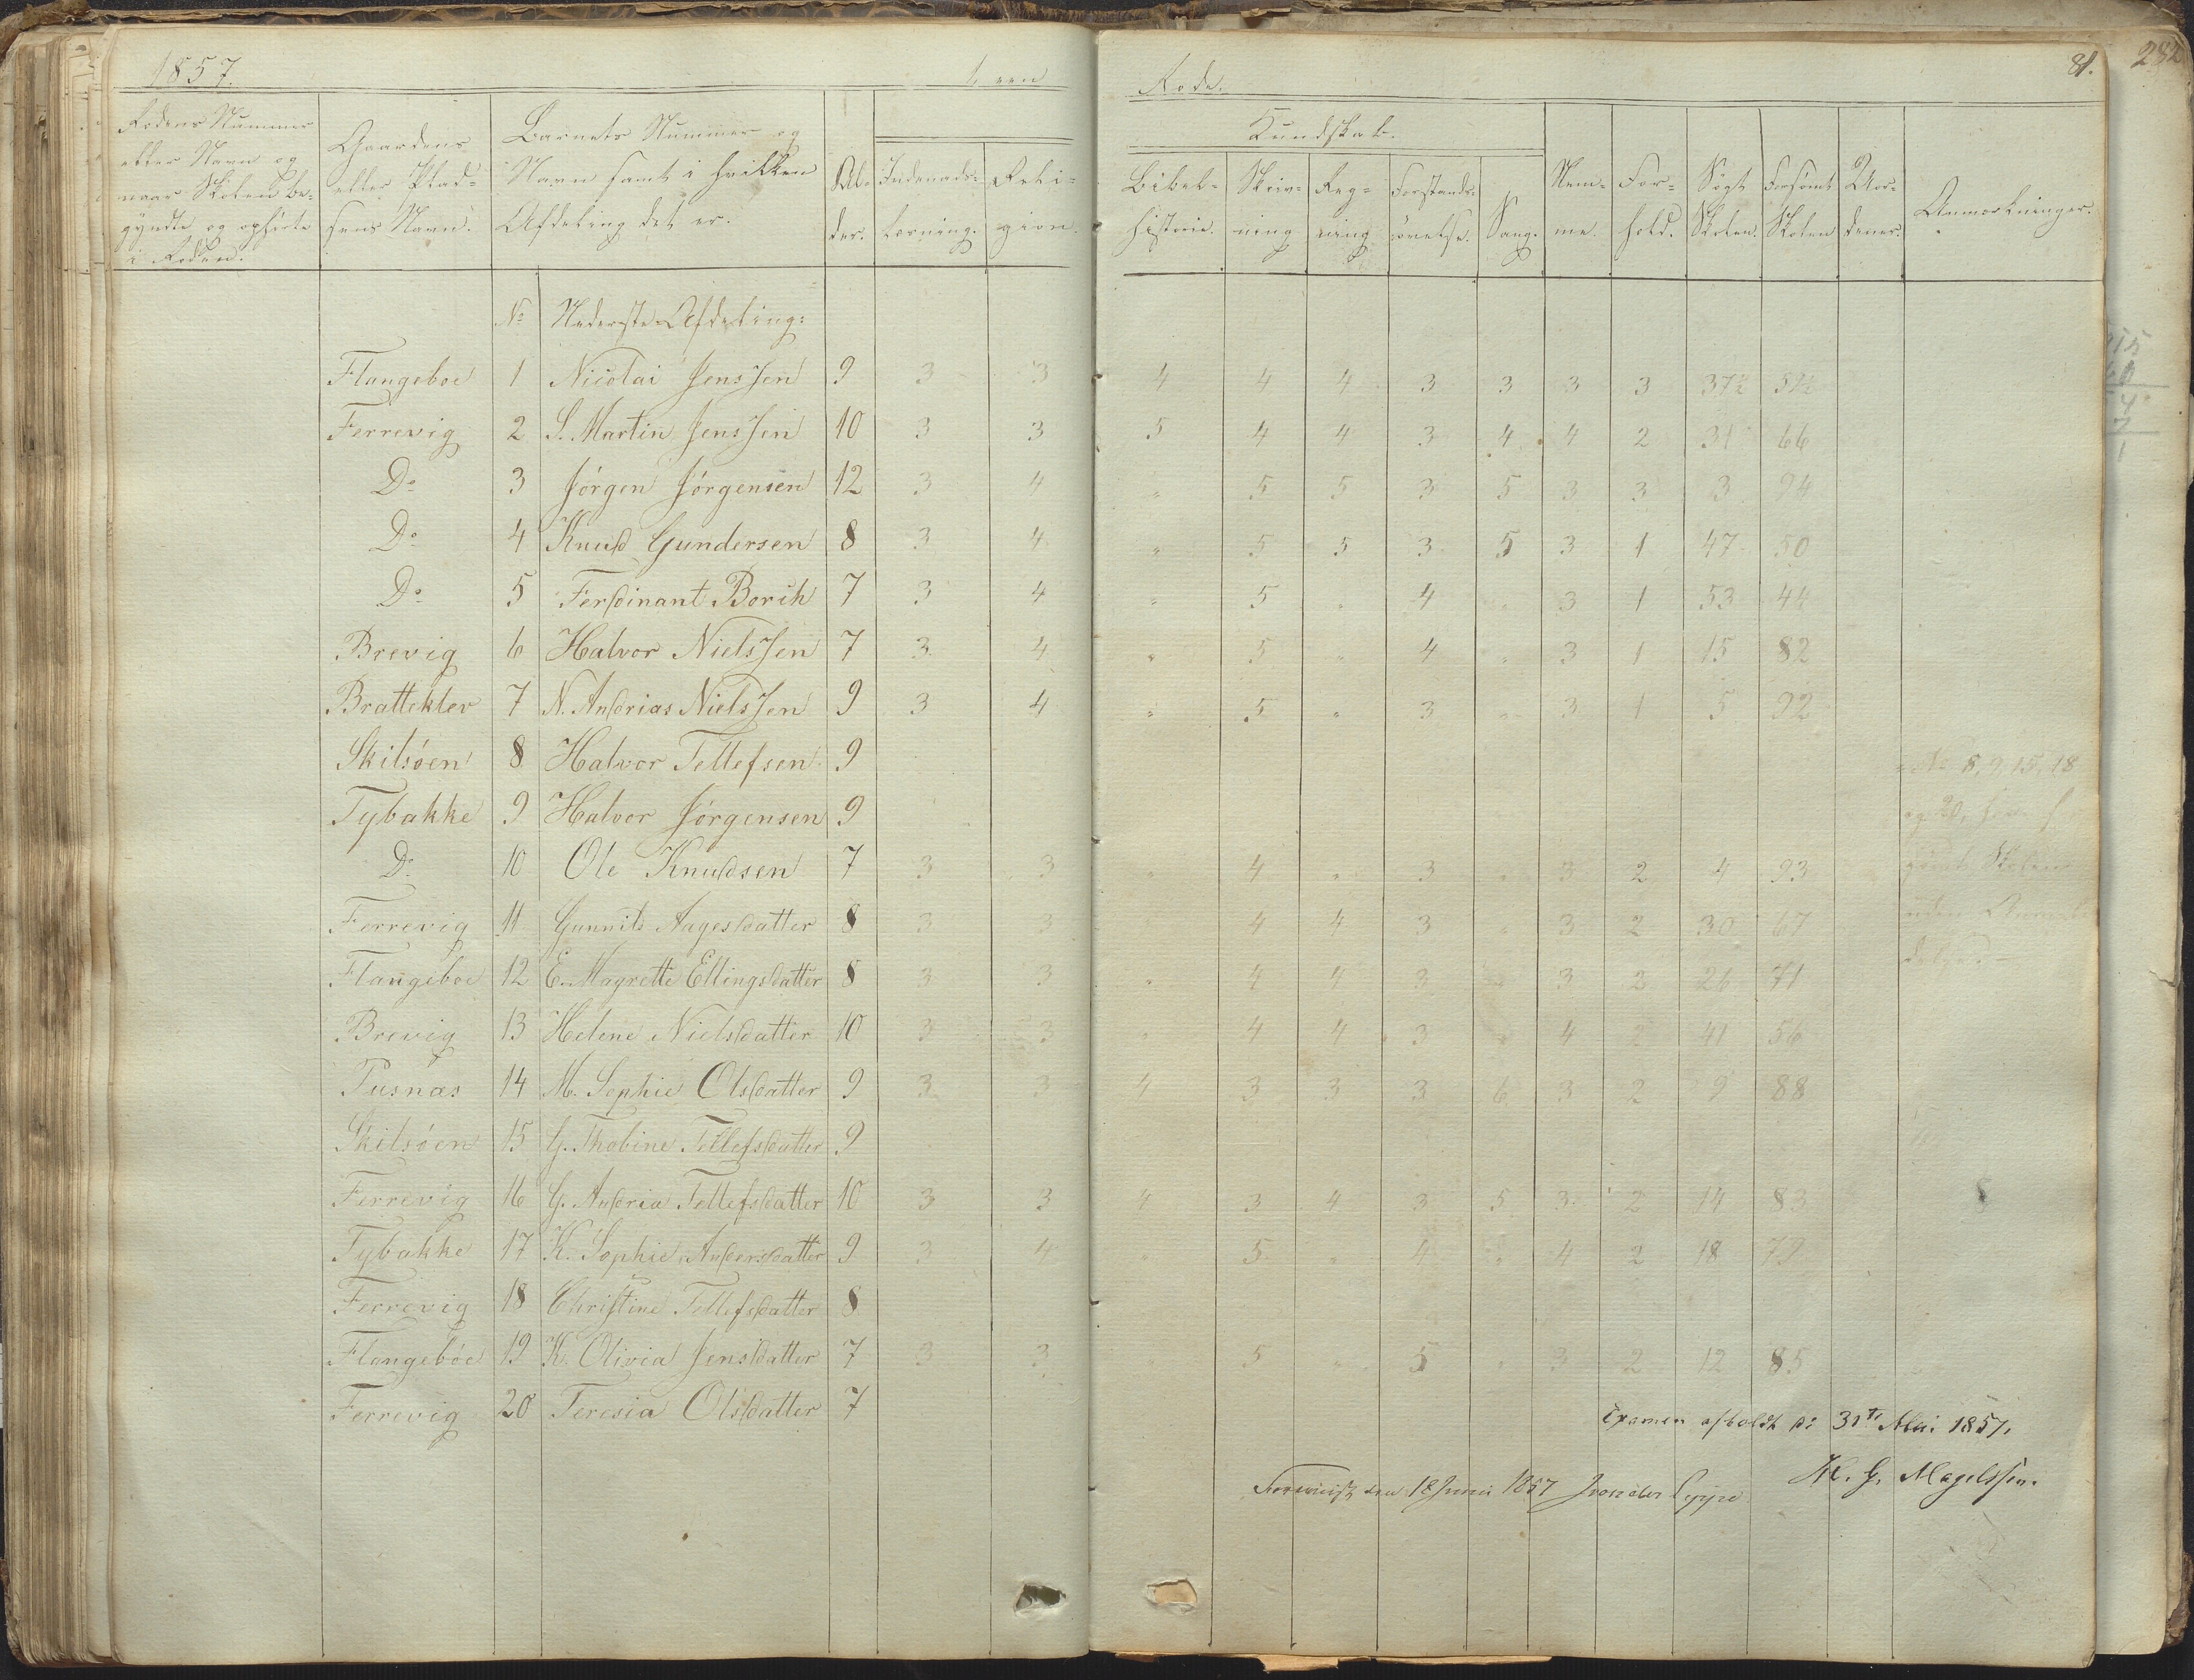 1857. 1, een Rode. 81. 282
Rodens Nummer eller Navn og naar Skolen be-gyndte og ophørte i Roden.
Gaardens eller Plad-sens Navn.
Barnets Nummer og Navn samt i hvilken Afdeling det er.
Al-der.
Indenads-læsning.
Reli-gion.
Kundskab.
Bibel-historie.
Skriv-ning
Reg-ning
Forstands-øvelse.
Sang.
Nem-me.
For-hold.
Søgt Skolen.
Forsømt Skolen
Uor-dener.
Anmærkninger.
No Nederste Afdeling:
Flangeboe 1 Nicolai Jenssen 9 3 3 4 4 4 3 3 3 3 37½ 59½
Ferrevig 2 S. Martin Jenssen 10 3 3 5 4 4 3 4 4 2 31 66
Do 3 Jörgen Jörgensen 12 3 4 " 5 5 3 5 3 3 3 94
Do 4 Knud Gundersen 8 3 4 " 5 5 3 5 3 1 47 50
Do 5 Ferdinant Borch 7 3 4 " 5 " 4 " 3 1 53 44
Brevig 6 Halvor Nielssen 7 3 4 " 5 " 4 " 3 1 15 82
Bratteklev 7 N. Andrias Nielssen 9 3 4 " 5 " 3 " 3 1 5 92
Skilsöen 8 Halvor Tellefsen 9
Tybakke 9 Halvor Jörgensen 9
Do 10 Ole Knudsen 7 3 3 " 4 " 3 " 3 2 4 93
Ferrevig 11 Gunnild Aagesdatter 8 3 3 " 4 4 3 " 3 2 30 67
Flangeboe 12 E. Magrette Ellingsdatter 8 3 3 " 4 4 3 " 3 2 26 71
Brevig 13 Helene Nielsdatter 10 3 3 " 4 4 3 " 4 2 41 56
Pusnæs 14 M. Sophie Olsdatter 9 3 3 4 3 3 3 6 3 2 9 88
Skilsöen 15 G. Thobine Tellefsdatter 9
Ferrevig 16 G. Andria Tellefsdatter 10 3 3 4 3 4 3 5 3 2 14 83
Tybakke 17 K. Sophie Andersdatter 9 3 4 " 5 " 4 " 4 2 18 79
Ferrevig 18 Christine Tellefsdatter 8
Flangeböe 19 K. Olivia Jensdatter 7 3 3 " 5 " 5 " 3 2 12 85
Ferrevig 20 Teresia Olsdatter 7
No 8, 9, 15, 18
og 20, har
Skolen
uden
Examen afholdt d: 31te Mai 1857.
M. G. Magelssen.
Forevist den 18 Juni 1857